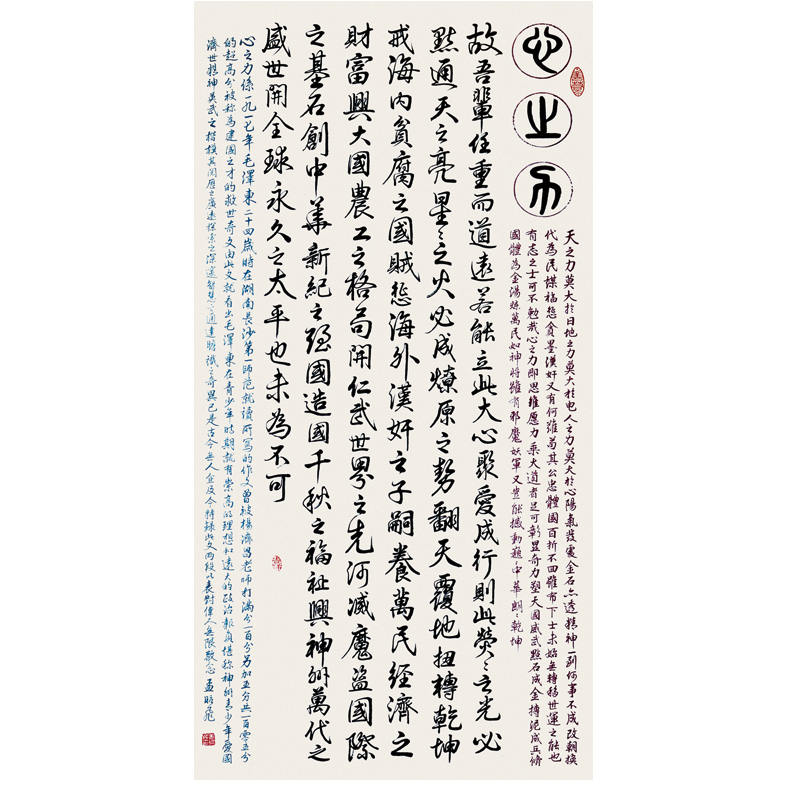 心之力
天之力莫大於日地之力莫大於电人之力莫大於心陽氣發處金石亦透精神一到何事不成改朝換
代為民謀福惩貪墨漢奸又有何難苟其公忠體國百折不回雖布下士未始無轉移世運之能也
有志之士可不勉哉心之力即思維愿力乘大道者足可彰显奇力塑天國威武點石成金摶紙成兵脩
國體為金湯煉萬民如神將雖有邪魔妖軍又豈能撼動巍〻中華朗〻乾坤
故吾輩任重而道遠若能立此大心聚愛成行則此熒〻之光必
點通天之亮星〻之火必成燎原之勢翻天覆地扭轉乾坤
戒海内貧腐之國賊惩海外漢奸之子嗣養萬民經濟之
財富興大國農工之格局開仁武世界之先河滅魔盜國際
之基石創中華新紀之强國造國千秋之福祉興神州萬代之
盛世開全球永久之太平也未為不可
心之力係一九一七年毛澤東二十四歲時在湖南長沙第一師范就讀所寫的作文曾被楊濟昌老师打滿分一百分另加五分共一百零五分
的超高分被称為建國之才的救世奇文由此文就看出毛澤東在青少年時期就有崇高的理想和遠大的政治報負堪称神州青少年愛國
濟世精神英武之楷模其閱歷之廣遠探索之深邃智慧之通達膽識之奇異已是古今無人企及今特錄此文两段以表對偉人無限敬念 孟昭